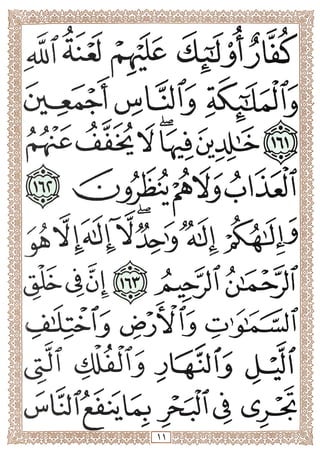 كُفَّارٌ أُو۟لَـٰٓئِكَ عَلَيْهِمْ لَعْنَةُ ٱللَّهِ
وَٱلْمَلَـٰٓئِكَةِ وَٱلنَّاسِ أَجْمَعِينَ
١٦١ خَـٰلِدِينَ فِيهَا ۖ لَا يُخَفَّفُ عَنْهُمُ
ٱلْعَذَابُ وَلَا هُمْ يُنظَرُونَ ١٦٢
وَإِلَـٰهُكُمْ إِلَـٰهٌ وَٰحِدٌ ۖ لَّآ إِلَـٰهَ إِلَّا هُوَ
ٱلرَّحْمَـٰنُ ٱلرَّحِيمُ ١٦٣ إِنَّ فِى خَلْقِ
ٱلسَّمَـٰوَٰتِ وَٱلْأَرْضِ وَٱخْتِلَـٰفِ
ٱلَّيْلِ وَٱلنَّهَارِ وَٱلْفُلْكِ ٱلَّتِى
تَجْرِى فِى ٱلْبَحْرِ بِمَا يَنفَعُ ٱلنَّاسَ
١١